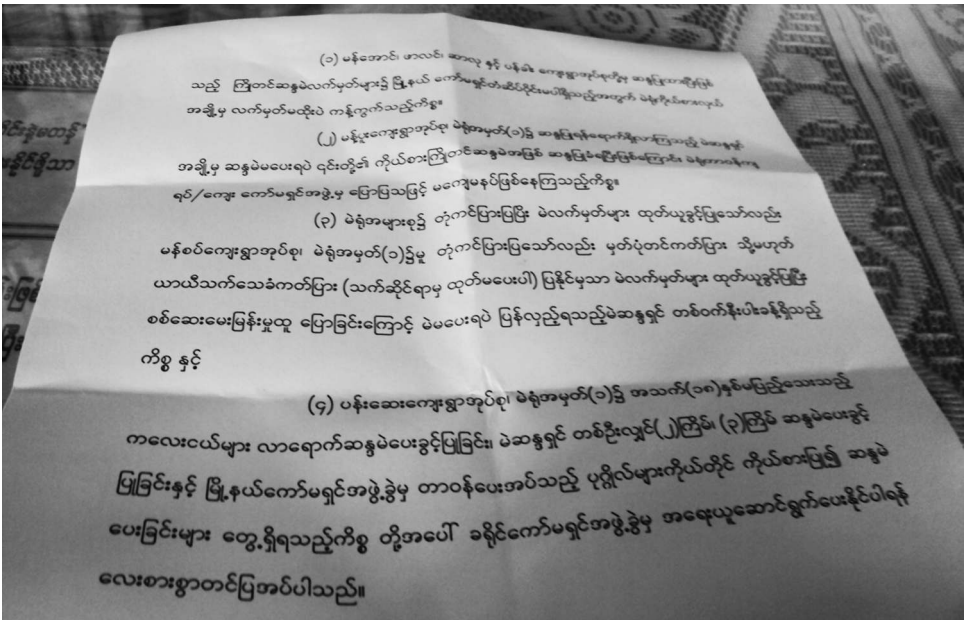 (၁) မန်အောင်၊ ဖာလင်၊ ဆာလူ နှင့် ပန်ခါး ကျေးရွာအုပ်စုတို့မှ ဆန္ဒပြုထားရှိမှု
သည့် ကြိုတင်ဆန္ဒမဲလက်မှတ်များ၌ မြို့နယ် ကော်မရှင်တံဆိပ်ပိုင်းမပါရှိသည့်အတွက် မဲရုံကိုယ်စားလှယ်
အချို့မှ လက်မှတ်မထိုးပဲ ကန့်ကွက်သည့်ကိစ္စ။
(၂) မန်ပူးကျေးရွာအုပ်စု၊ မဲရုံအမှတ်(၁)၌ ဆန္ဒပြုရန်ရောက်ရှိလာကြသည့် မဲဆန္ဒရှင်
အချို့မှ ဆန္ဒမဲမပေးရပဲ ၎င်းတို့၏ ကိုယ်စားကြိုတင်ဆန္ဒမဲအဖြစ် ဆန္ဒပြုခဲ့ပြီးဖြစ်ကြောင်း၊ မဲရုံတာဝန်ကျ
ရပ်/ကျေး ကော်မရှင်အဖွဲ့မှ ပြောပြသဖြင့် မကျေမနပ်ဖြစ်နေကြသည့်ကိစ္စ။
(၃) မဲရုံအများစု၌ တုံ့ကင်ပြားပြပြီး မဲလက်မှတ်များ ထုတ်ယူခွင့်ပြုသော်လည်း
မန်စပ်ကျေးရွာအုပ်စု၊ မဲရုံအမှတ်(၁)၌မူ တုံ့ကင်ပြားပြသော်လည်း မှတ်ပုံတင်ကတ်ပြား သို့မဟုတ်
ယာယီသက်သေခံကတ်ပြား (သက်ဆိုင်ရာမှ ထုတ်မပေးပါ) ပြနိုင်မှသာ မဲလက်မှတ်များ ထုတ်ယူခွင့်ပြုပြီး
စစ်ဆေးမေးမြန်းမှုထူ ပြောခြင်းကြောင့် မဲမပေးရပဲ ပြန်လှည့်ရသည့်မဲဆန္ဒရှင် တစ်ဝက်နီးပါးခန့်ရှိသည့်
ကိစ္စ နှင့်
(၄) ပန်းဆေးကျေးရွာအုပ်စု၊ မဲရုံအမှတ်(၁)၌ အသက်(၁၈)နှစ်မပြည့်သေးသည့်
ကလေးငယ်များ လာရောက်ဆန္ဒမဲပေးခွင့်ပြုခြင်း၊ မဲဆန္ဒရှင် တစ်ဦးလျှင်(၂)ကြိမ်၊ (၃)ကြိမ် ဆန္ဒမဲပေးခွင့်
ပြုခြင်းနှင့် မြို့နယ်ကော်မရှင်အဖွဲ့ခွဲမှ တာဝန်ပေးအပ်သည့် ပုဂ္ဂိုလ်များကိုယ်တိုင် ကိုယ်စားပြု၍ ဆန္ဒမဲ
ပေးခြင်းများ တွေ့ရှိရသည့်ကိစ္စ တို့အပေါ် ခရိုင်ကော်မရှင်အဖွဲ့ခွဲမှ အရေးယူဆောင်ရွက်ပေးနိုင်ပါရန်
လေးစားစွာတင်ပြအပ်ပါသည်။